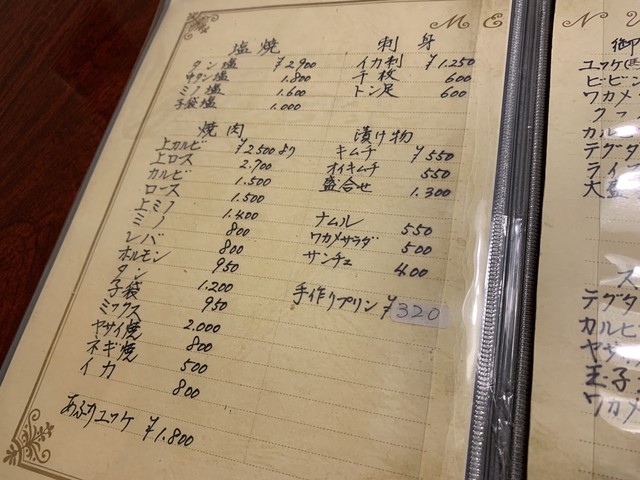 ME
NU
塩焼
タン塩 ¥2,900
中タン塩 1.800
ミノ塩 1.600
子袋塩 1.000
焼肉
上カルビ ¥2,500より
上ロース 2.700
カルビ 1.500
ロース 1.500
上ミノ 1.400
ミノ 800
レバ 800
ホルモン 950
タン 1.200
子袋 950
ミックス 2.000
ヤサイ焼 800
ネギ焼 500
イカ 800
あぶりユッケ ¥1.800
刺身
イカ刺 ¥1.250
千枚 600
トン足 600
漬け物
キムチ ¥550
オイキムチ 550
盛合せ 1.300
ナムル 550
ワカメサラダ 500
サンチェ 400
手作りプリン ¥320
御
ユッケ
ビビン
ワカメ
クッパ
カル
テグタ
ライス
大盛
ス
テグタ
カルビ
ヤサ
玉子
ワカメ